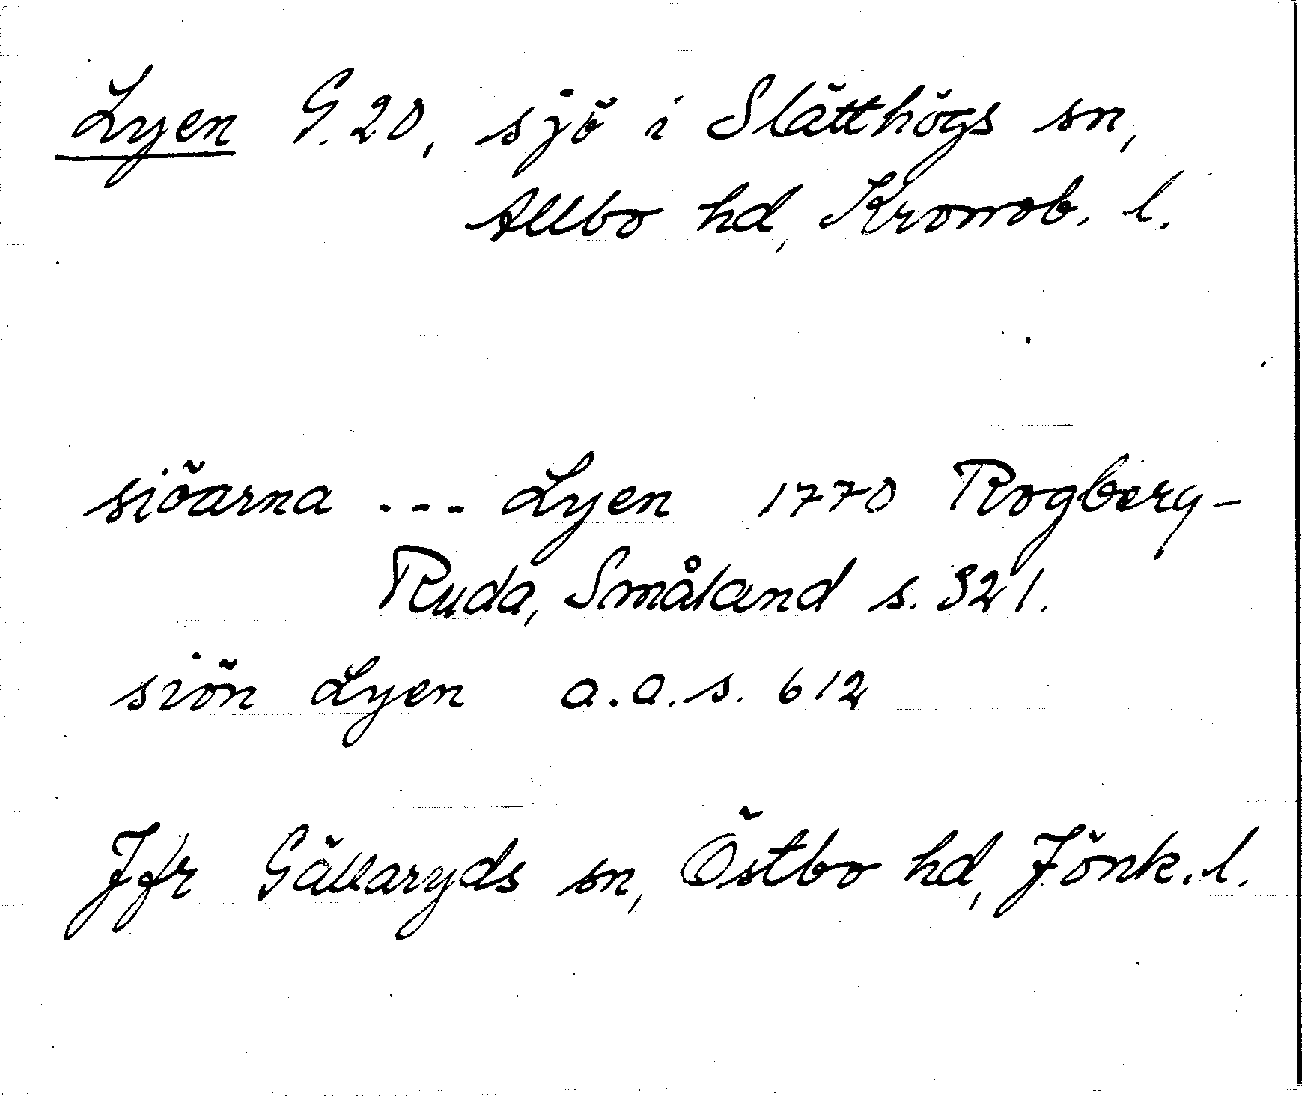 Lyen G. 20, sjö i Slätthögs sn,
Allbo hd, Kronob. l.
siöarna --- Lyen 1770 Rogberg-
Ruda, Småland s. 321.
siön Lyen a.a.s. 612
Jfr Gällaryds sn, Östbo hd, Jönk. l.